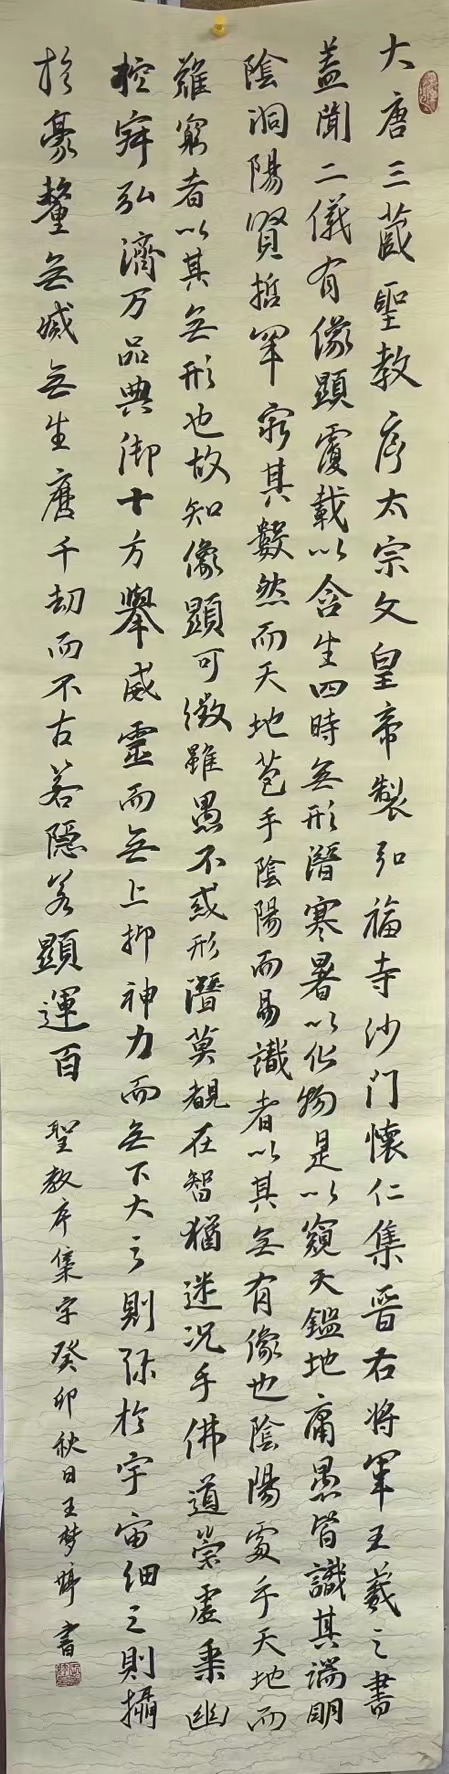 大唐三藏聖教序太宗文皇帝製弘福寺沙門懷仁集晉右將軍王羲之書
蓋聞二儀有像顯覆載以含生四時無形潛寒暑以化物是以窺天鑑地庸愚皆識其端明
陰洞陽賢哲罕窮其數然而天地苞乎陰陽而易識者以其無有像也陰陽處乎天地而
難窮者以其無形也故知像顯可徵雖愚不惑形潛莫覩在智猶迷况乎佛道崇虛乘幽
控寂弘濟万品典御十方舉威靈而無上抑神力而無下大之則弥於宇宙細之則攝
於豪釐無滅無生歷千劫而不古若隱若顯運百
聖教序集字癸卯秋日王梦婷書